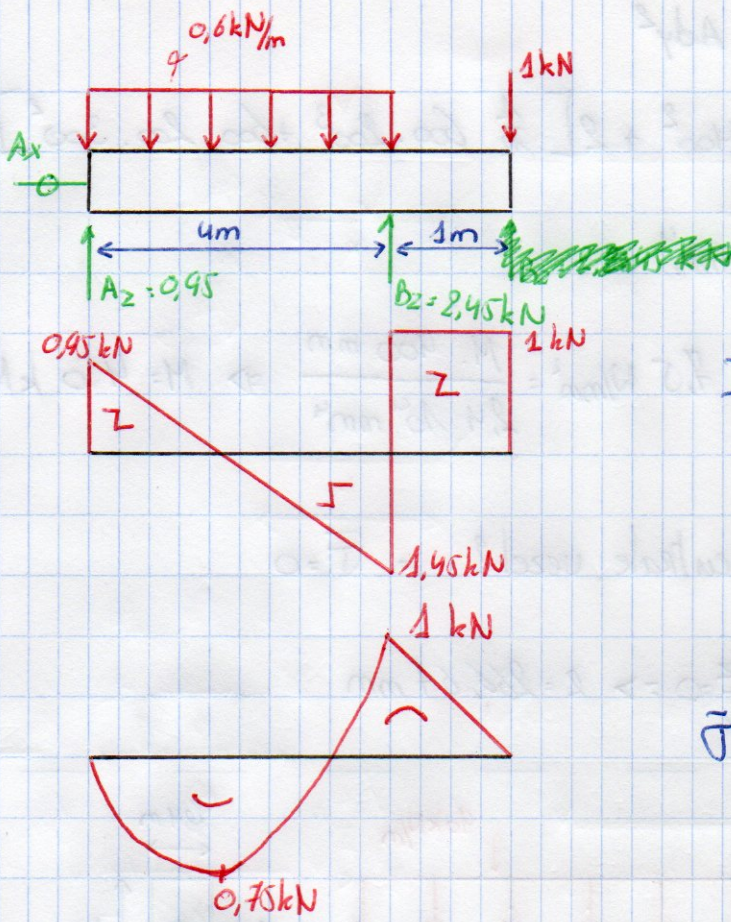 q 0,6 kN/m
1 kN
Ax
4m
1m
Az = 0,95
Bz = 2,45 kN
0,95 kN
1 kN
1,45 kN
1 kN
0,75 kN